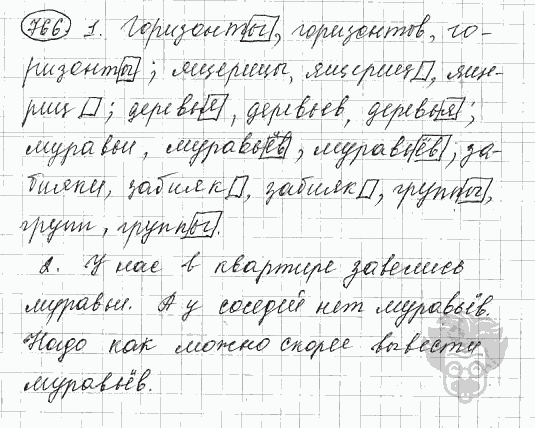 766 1. Горизонты, горизонтов, го-
ризонты; ящерицы, ящериц, яще-
риц; деревья, деревьев, деревья;
муравьи, муравьёв, муравьёв; за-
бияки, забияк, забияк, группы,
групп, группы.
2. У нас в квартире завелись
муравьи. А у соседей нет муравьёв.
Надо как можно скорее вывести
муравьёв.